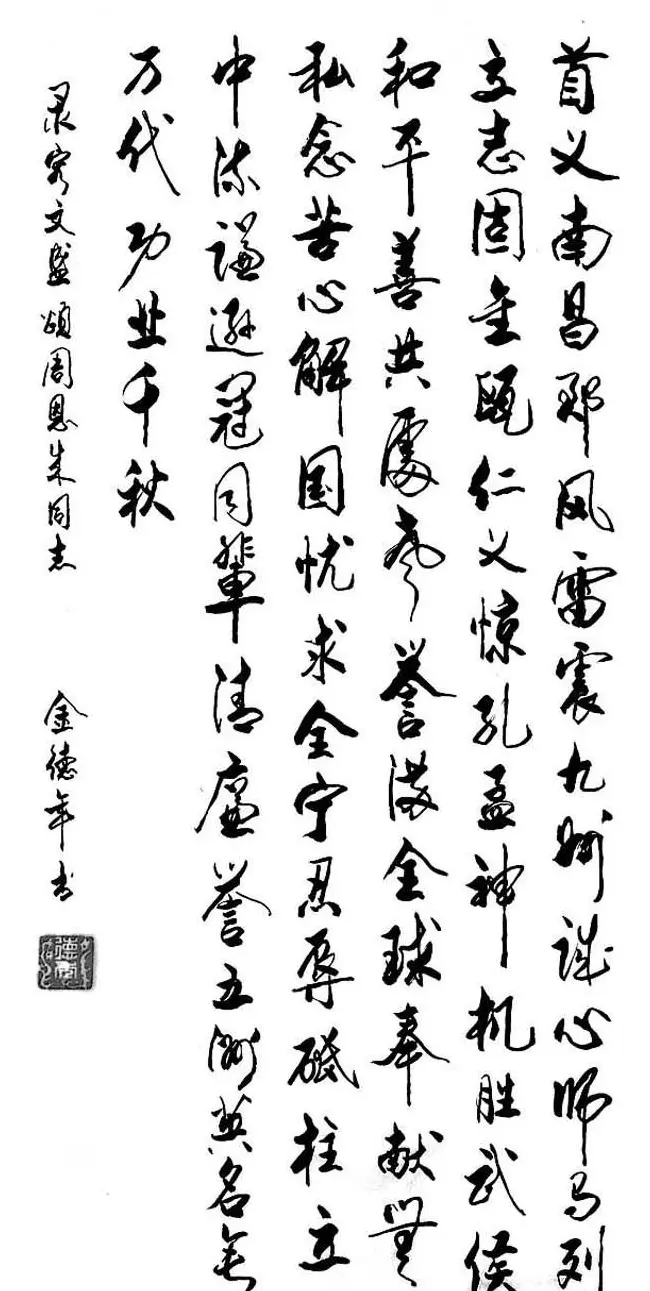 首义南昌郡风雷震九州诚心师马列
立志固金瓯仁义惊孔孟神机胜武侯
和平善共處声誉满全球奉献無
私念苦心解国忧求全宁忍辱砥柱立
中流谦逊冠同辈清廉誉五洲英名垂
万代功业千秋
录文盛颂周恩来同志
金德年书